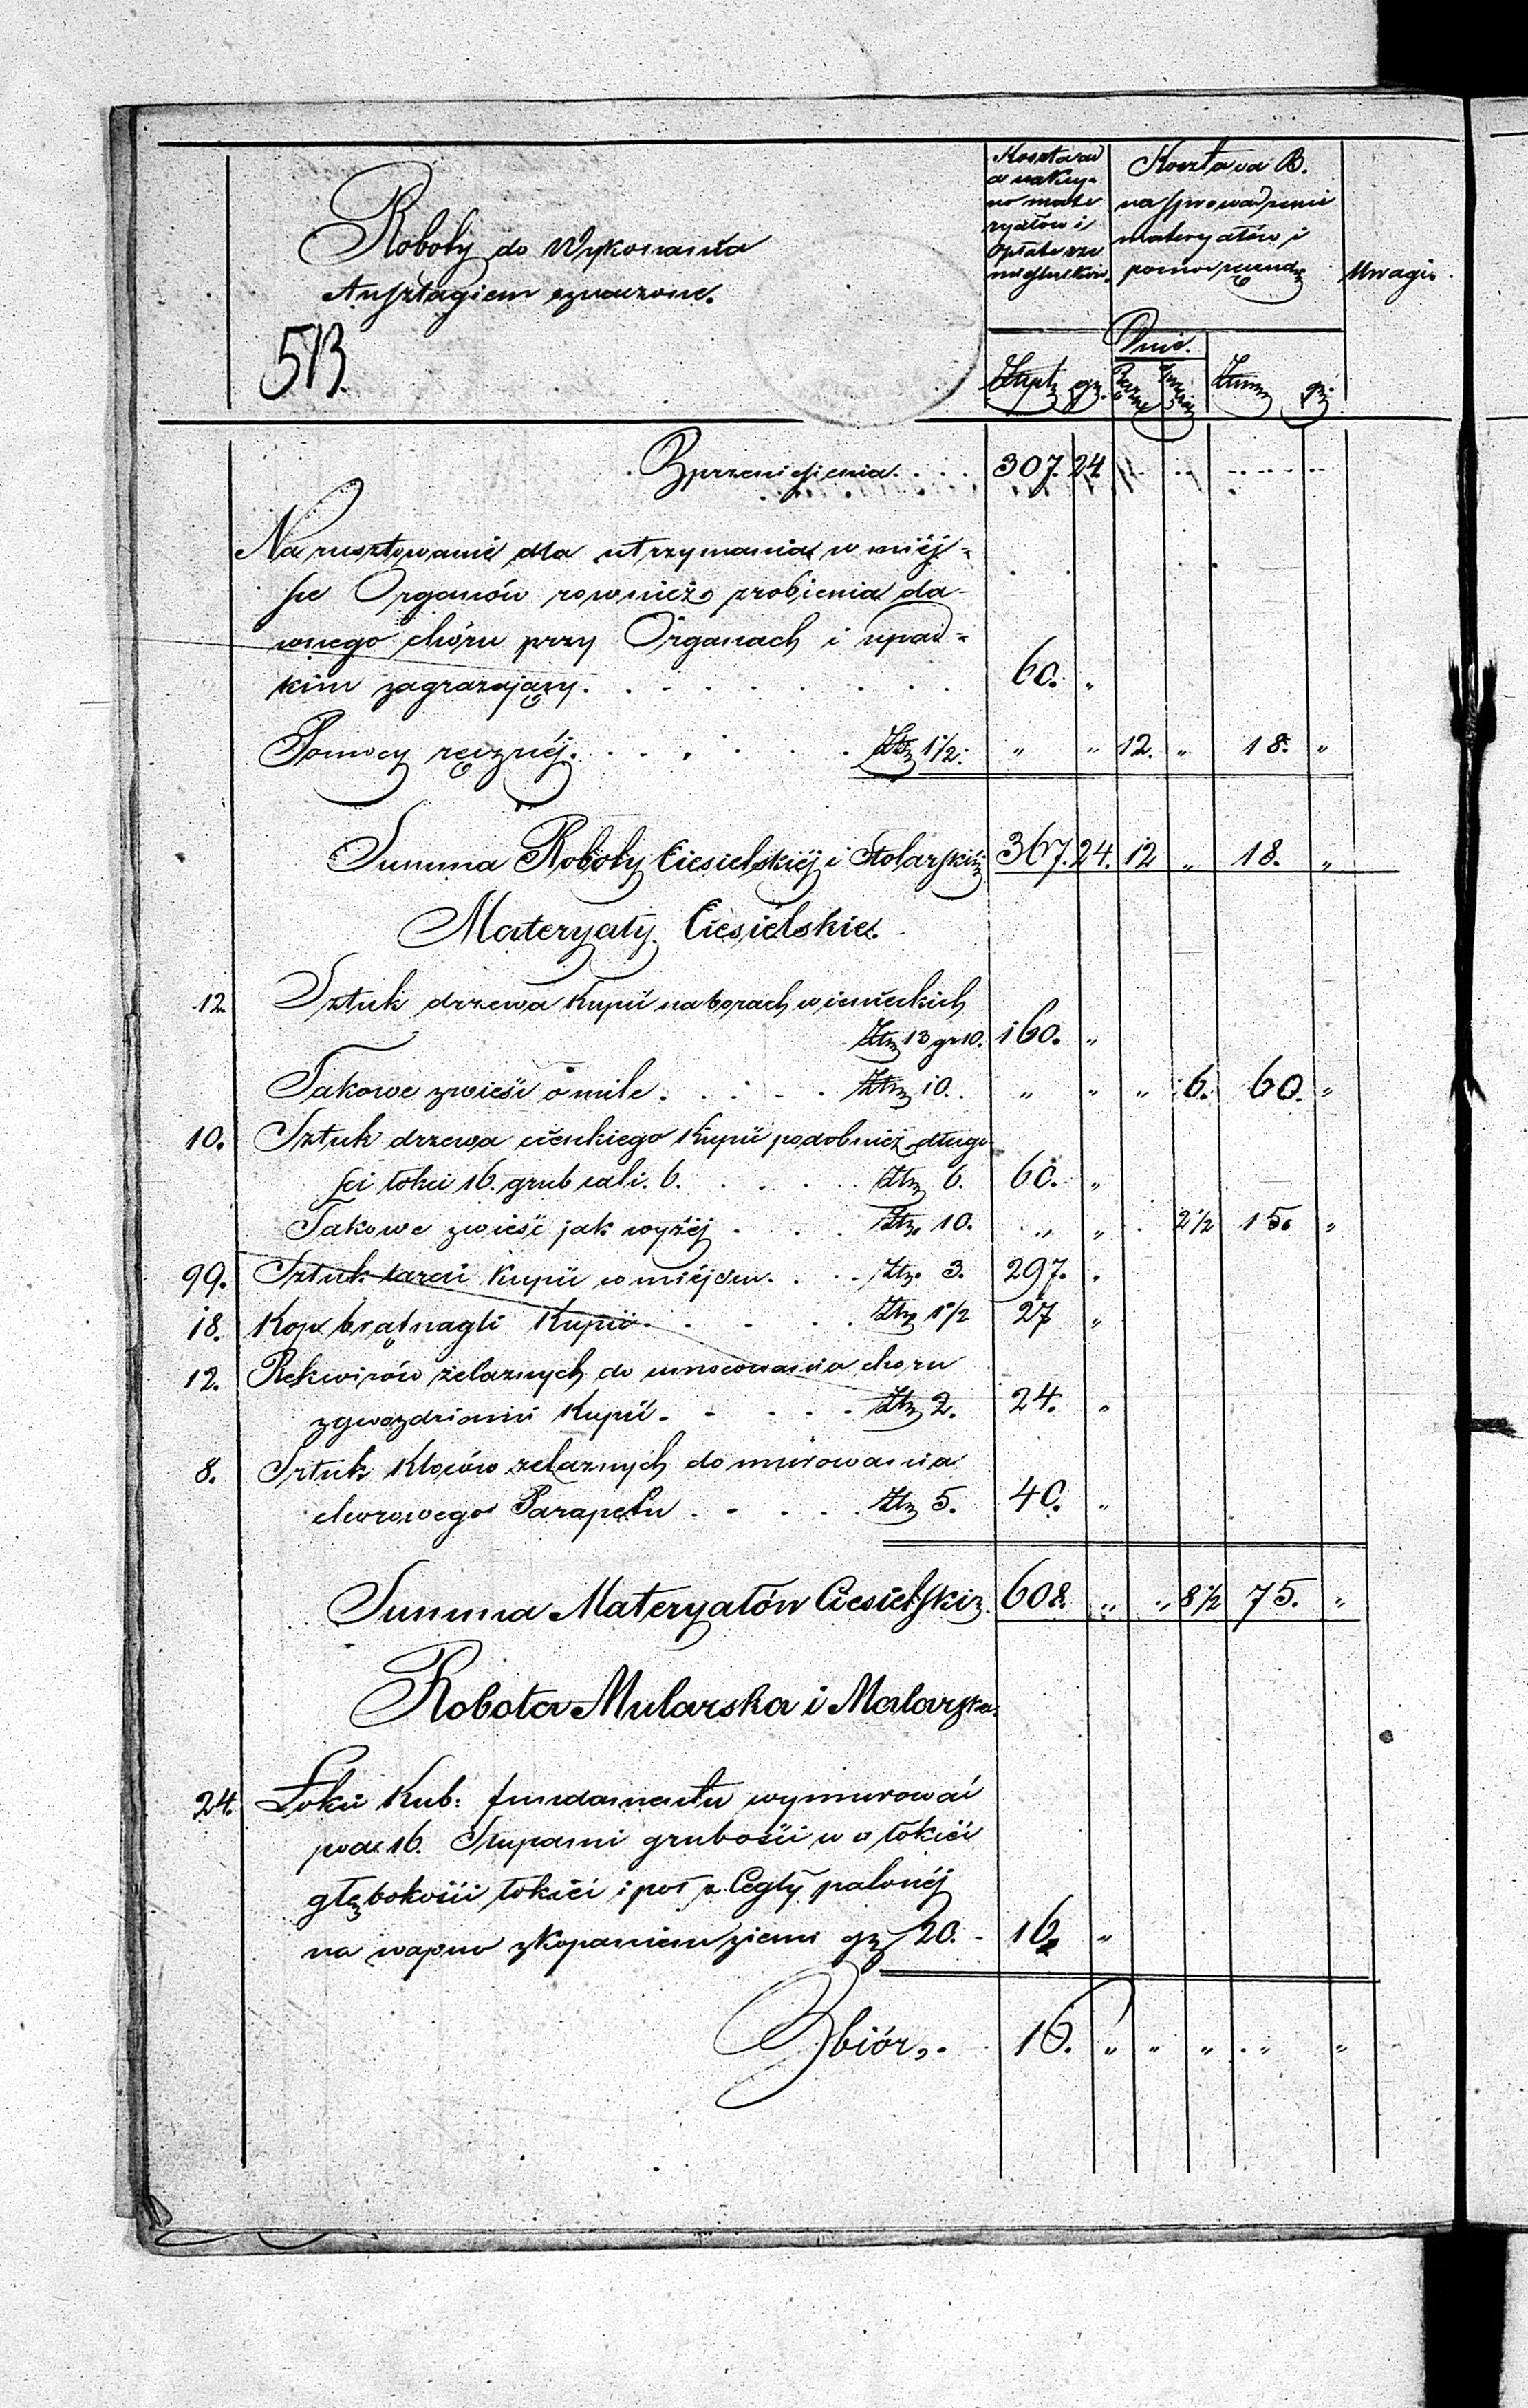 Roboty do Wykonania
Anszlagiem oznaczone.
513.
Koszta ad
a na kup-
no mate
ryałów i
Opłatę rze
mieslników.
Koszta ad B.
na sprowadzenie
materyałów i
pomoc ręczną
Uwagi.
Dnie.
Złp gr. Ręczne Złp gr
Z przeniesienia. . . . 307. 24
Na rusztowanie dla utrzymania w miéj-
sce Organów rownież zrobienia da-
wnego chóru przy Organach i upad-
kim zagrażający. . . . . . . . . 60. "
Pomocy ręcznéj. . . . . . Złp 1 1/2. " " 12. " 18. "
Summa Roboty Ciesielskiéj i Stolarskiéj 367. 24. 12 " 18. "
Materyały Ciesielskie.
12. Sztuk drzewa Kupić na borach wienieckich
Złp 13 gr 10. 160. "
Takowe zwieść o mile. . . . . Złp 10. " " " 6. 60. "
10. Sztuk drzewa cienkiego Kupić podobnież długo
ści łokci 16. grub cali. 6. . . . . Złp 6. 60. "
Takowe zwieść jak wyżéj . . . Złp. 10. " " 2 1/2 15. "
99. Sztuk tarcic Kupić w miéjscu. . . . Złp. 3. 297. "
18. Kop bratnagli Kupić. . . . . Złp 1 1/2 27 "
12. Rekwizów żelaznych do umocowania choru
z gwozdziami Kupić. . . . . Złp 2. 24. "
8. Sztuk Kloców żelaznych do murowania
chorowego Parapetu . . . . . Złp 5. 40. "
Summa Materyałów Ciesielskich. 608. " " 8 1/2 75. "
Robota Mularska i Malarska.
24. Łokci Kub: fundamentu wymurować
pod 16. Słupami grubości w o łokieć
głębokości łokieć i pół z Cegły palonéj
na wapno z Kopaniem ziemi gr 20. - 16 "
Zbiór. . 16. " " " " "